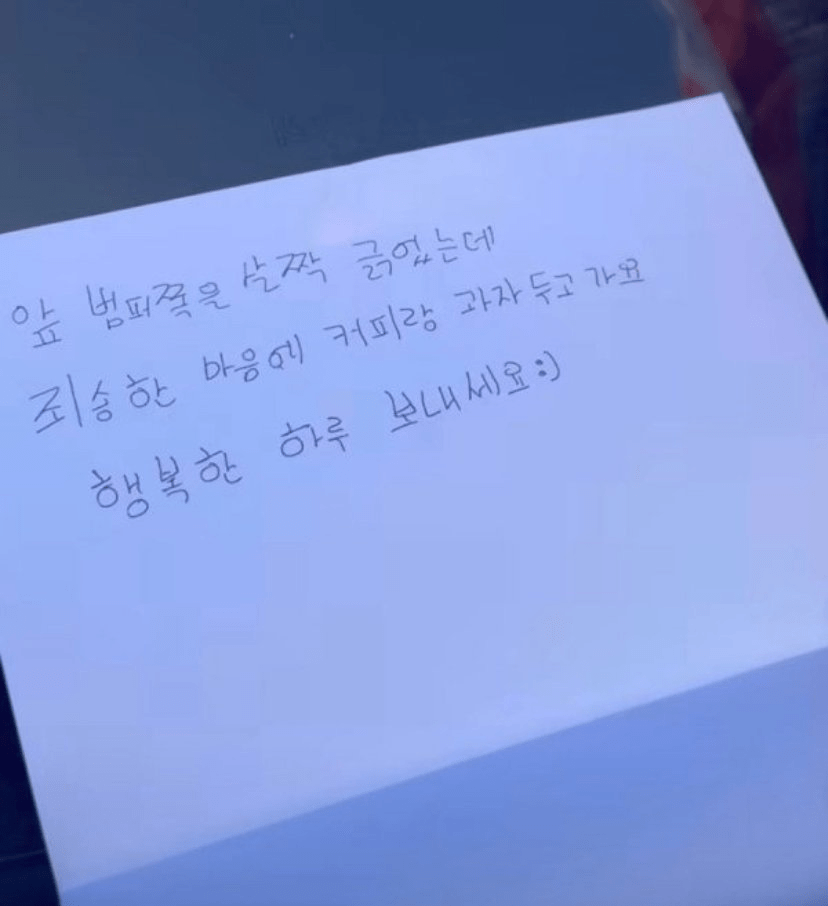 앞 범퍼쪽을 살짝 긁었는데
죄송한 마음에 커피랑 과자 두고 가요
행복한 하루 보내세요:)